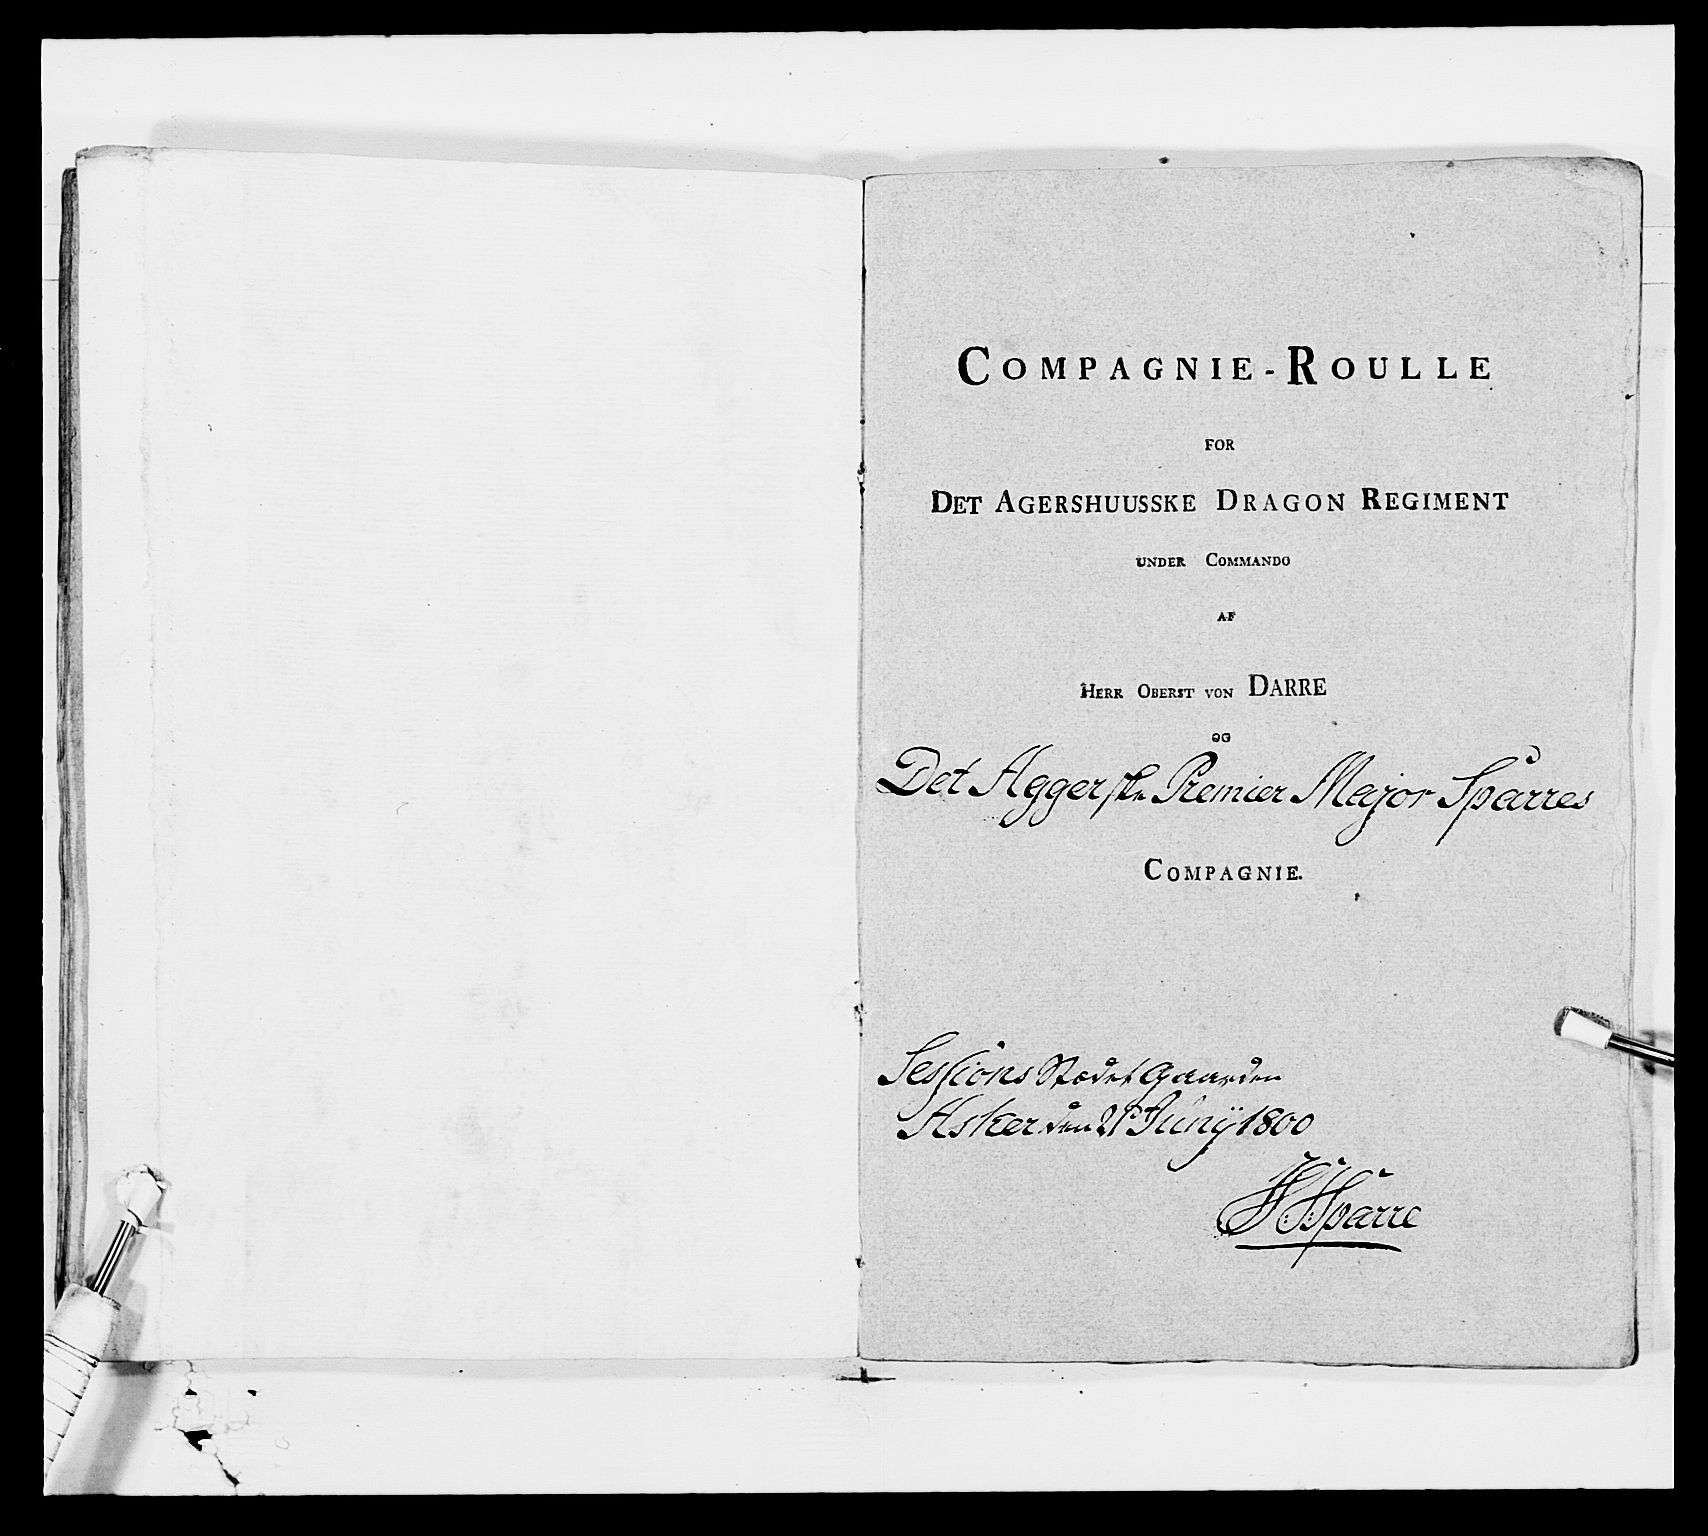 COMPAGNIE-ROULLE
FOR
DET AGERSHUUSSKE DRAGON REGIMENT
UNDER COMMANDO
AF
HERR OBERST VON DARRE
OG
Det Aggerske Premier Major Sparres
COMPAGNIE.
Sessions Stædet Gaarden
Asker den 21 Junÿ 1800
Sparre